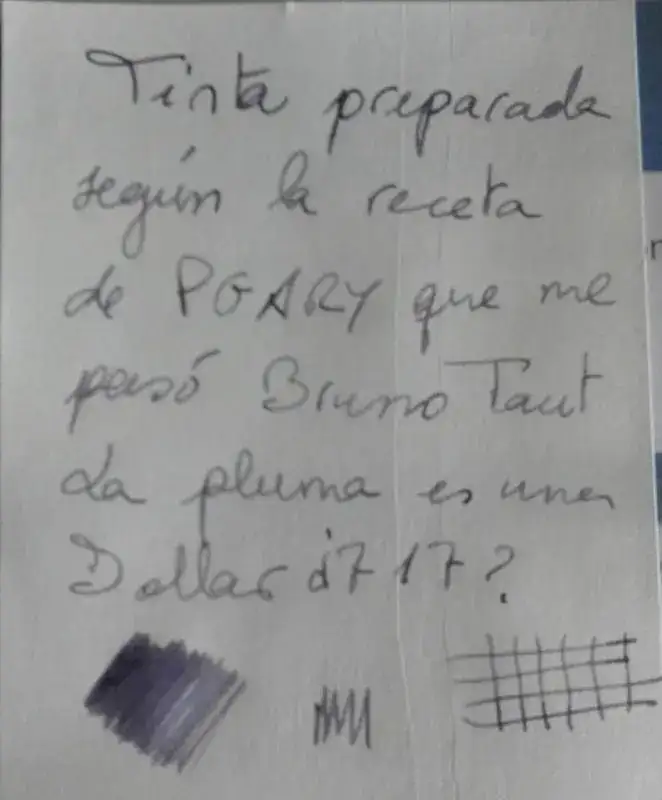 Tinta preparada
según la receta
de PGARY que me
pasó Bruno Taut
La pluma es una
Dollar ¿717?